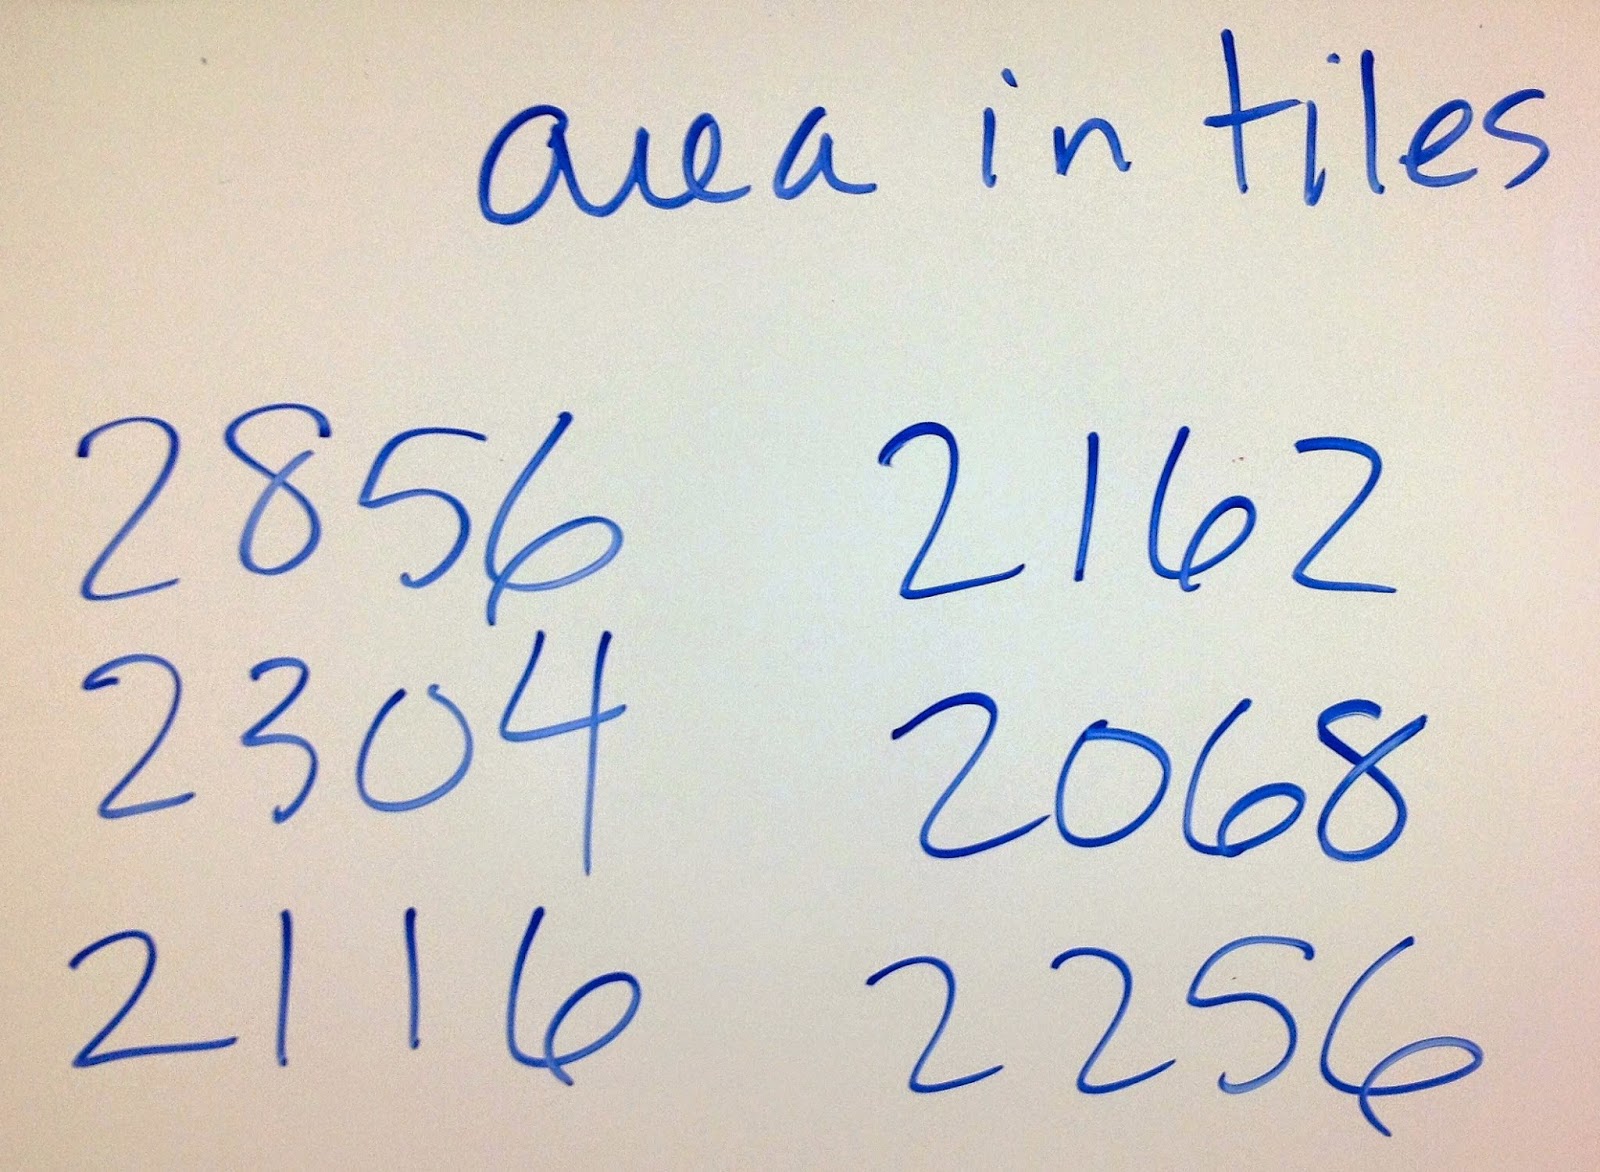 area in tiles
2856 2162
2304 2068
2116 2256